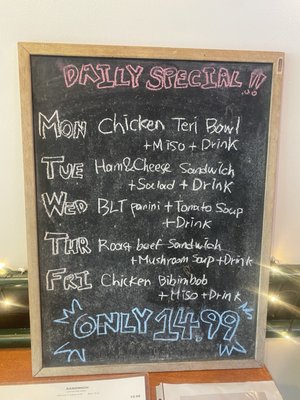 DAILY SPECIAL!!
MON Chicken Teri Bowl
+Miso + Drink
TUE Ham&Cheese Sandwich
+Salad + Drink
WED BLT panini + Tomato Soup
+Drink
THR Roast beef Sandwich
+Mushroom Soup + Drink
FRI Chicken Bibinbob
+Miso + Drink
ONLY 14.99